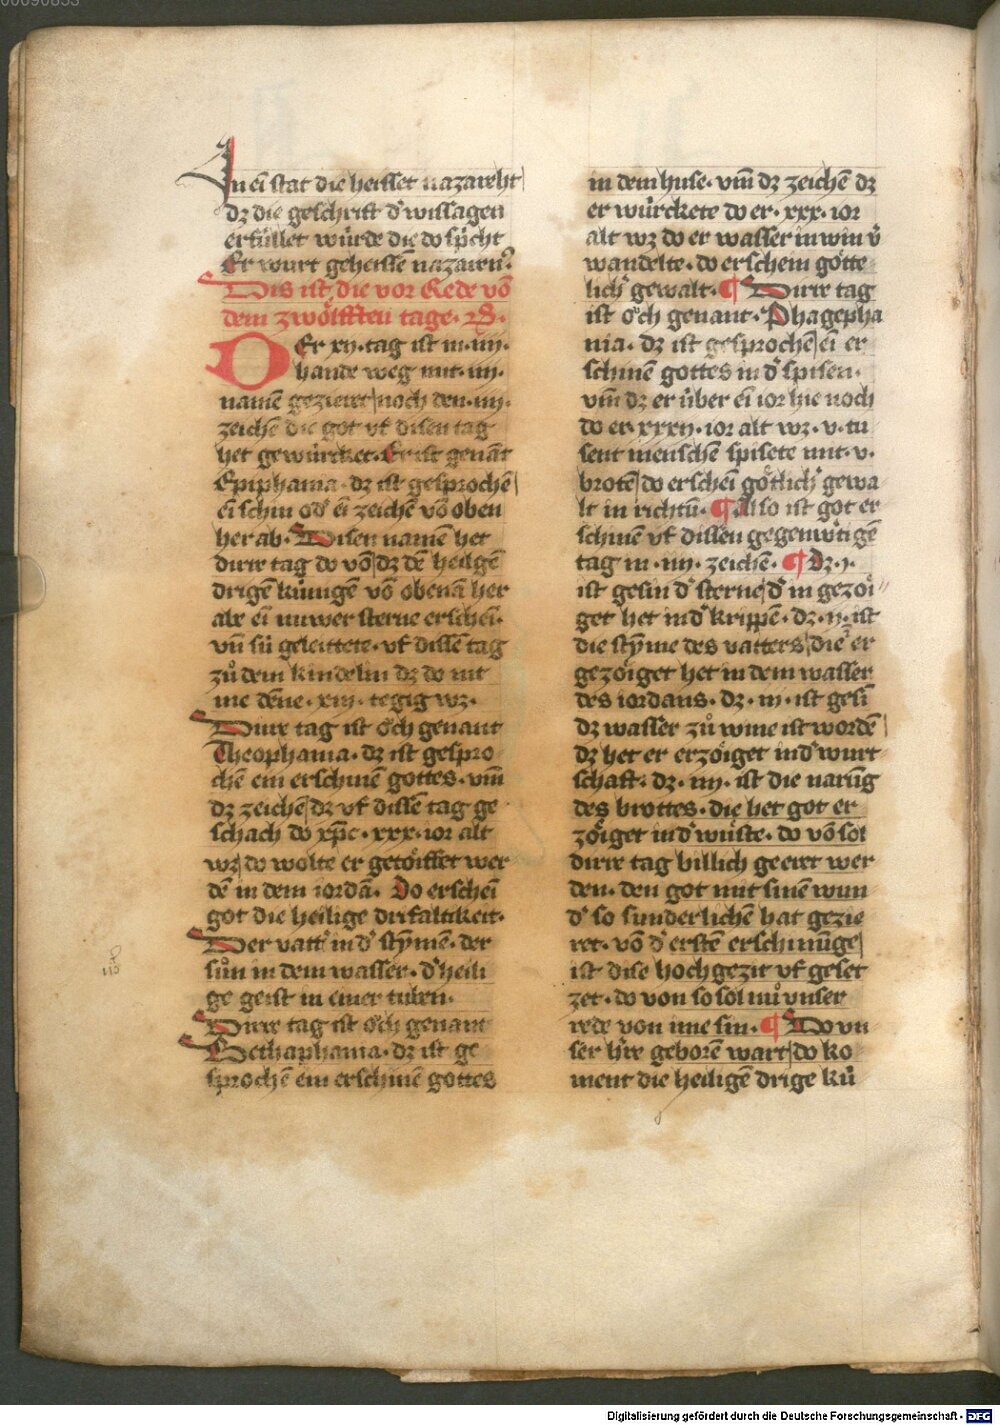 In eī stat die heisset nazareht
dz die geschrift d' wissagen
erfüllet würde die do spͥcht
Er wurt geheissē nazaren9.
Dis ist die vor Rede vō
dem zwölfften tage.
DEr xij · tag ist in · iiij ·
hande weg mit · iiij ·
namē gezieret noch den · iiij ·
zeichē die got vf disen tag
het gewürcket · Er ist genāt
Epiphania · dz ist gesprochē
eī schin od' eī zeichē vō oben
her ab · Disen namē het
dirre tag do vō dz dē heilgē
drigen künigē vō obenā her
abe eī nuwer sterne erschei ·
vn̄ sü geleittete · vf dissē tag
zů dem kindelin dz do nit
me dēne · xiij · tegig wz ·
Dirre tag ist oͮch genant
Theophania · dz ist gespro
chē ein erschinē gottes · vm̄
dz zeichē dz vf dissē tag ge
schach do xp̄c · xxx · ior alt
wz do wolte er getöiffet wer
dē in dem iordā · Do erschei
got die heilige drifaltikeit ·
Der vatt' in d' stȳmen · der
sůn in dem wasser · d' heili
ge geist in einer tuben ·
Dirre tag ist oͮch genant
Bethaphania · dz ist ge
sprochē ein erschinē gottes
in dem huse · vm̄ dz zeichē dz
er würckete do er · xxx · ior
alt wz do er wasser in win v'
wandelte · do erschein götte
lich' gewalt · ¶ Dirre tag
ist oͮch genant · Phagepha
nia · dz ist gesprochē eī er
schinē gottes in d' spisen ·
vm̄ dz er über eī ior hie noch
do er · xxxij · ior alt wz · v · tu
sent menschē spisete mit · v ·
brotē do erschei götlich' gewa
lt in richtū · ¶ Also ist got er
schinē vf dissen gegenwͥtigē
tag in · iiij · zeichē · ¶ Dz · j ·
ist gesin d' sterne d' in gezöi
get het in d' krippē · dz · ij · ist
die stȳme des vatters die er
gezöiget het in dem wasser
des iordans · dz · iij · ist gesī
dz wasser zů wine ist wordē
dz het er erzöiget in d' wurt
schaft · dz · iiij · ist die narūg
des brottes · die het got er
zöiget in d' wüste · do vō sol
dirre tag billich geeret wer
den · den got mit sinē wun
d' so sunderlichē hat gezie
ret · vō d' erstē erschinūge
ist dise hochgezit vf geset
zet · do von so sol nů vnser
rede von ime sin · ¶ Do vn
ser h're geborē wart do ko
ment die heiligē drige kü
Digitalisierung gefördert durch die Deutsche Forschungsgemeinschaft - DFG